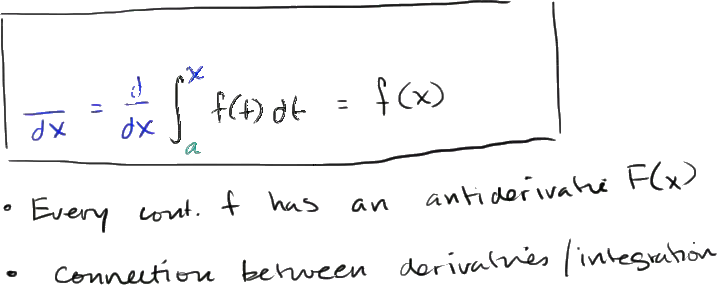 /dx = d/dx ∫_a^x f(t) dt = f(x)
• Every cont. f has an antiderivative F(x)
• connection between derivatives/integration